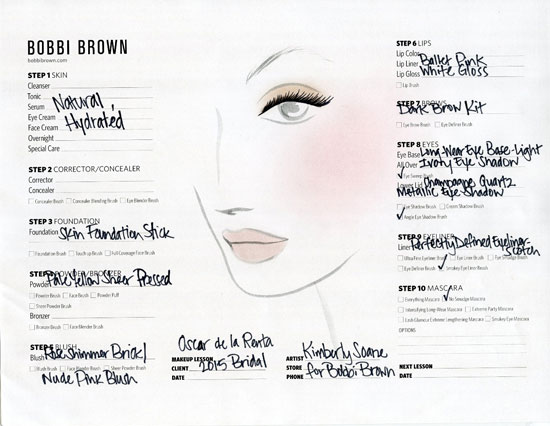 BOBBI BROWN
bobbibrown.com
STEP 1 SKIN
Cleanser
Tonic
Serum Natural,
Eye Cream
Face Cream Hydrated
Overnight
Special Care
STEP 2 CORRECTOR/CONCEALER
Corrector
Concealer
Concealer Brush Concealer Blending Brush Eye Blender Brush
STEP 3 FOUNDATION
Foundation Skin Foundation Stick
Foundation Brush Touch Up Brush Full Coverage Face Brush
STEP 4 POWDER/BRONZER
Pale Yellow Sheer Pressed
Powder
Powder Brush Face Brush Powder Puff
Sheer Powder Brush
Bronzer
Bronzer Brush Face Blender Brush
STEP 5 BLUSH
Blush Rose Shimmer Brick/
Blush Brush Face Blender Brush Sheer Powder Brush
Nude Pink Blush
Oscar de la Renta
MAKEUP LESSON
CLIENT 2015 Bridal
DATE
ARTIST Kimberly Soane
STORE for Bobbi Brown
PHONE
STEP 6 LIPS
Lip Color
Lip Liner Ballet Pink
Lip Gloss White Gloss
Lip Brush
STEP 7 BROWS
Dark Brow Kit
Eye Brow Brush Eye Definer Brush
STEP 8 EYES
Eye Base Long-Wear Eye Base-Light
All Over Ivory Eye Shadow
Eye Sweep Brush
Lower Lid Champagne Quartz
Metallic Eye Shadow
Eye Shadow Brush Cream Shadow Brush
Angle Eye Shadow Brush
STEP 9 EYELINER
Liner Perfectly Defined Eyeliner-
Scotch
Ultra Fine Eyeliner Brush Eye Liner Brush Eye Smudge Brush
Eye Definer Brush Smokey Eye Liner Brush
STEP 10 MASCARA
Everything Mascara No Smudge Mascara
Intensifying Long-Wear Mascara Extreme Party Mascara
Lash Glamour Extreme Lengthening Mascara Smokey Eye Mascara
OPTIONS
NEXT LESSON
DATE